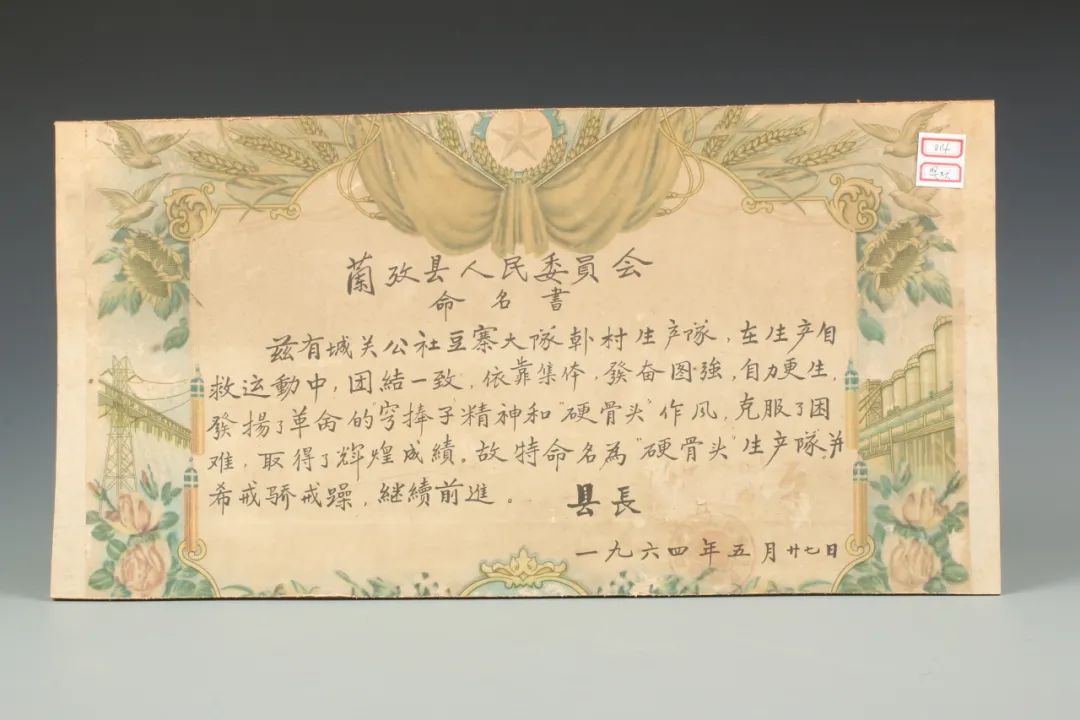 蘭攷县人民委員会
命名書
兹有城关公社豆寨大隊韩村生产隊，在生产自
救运動中，团結一致，依靠集体，發奋图強，自力更生，
發揚了革命的“穷捧子”精神和“硬骨头”作风，克服了困
难，取得了辉煌成績。故特命名為“硬骨头”生产隊，并
希戒骄戒躁，継續前進。
县長
一九六四年五月廿七日